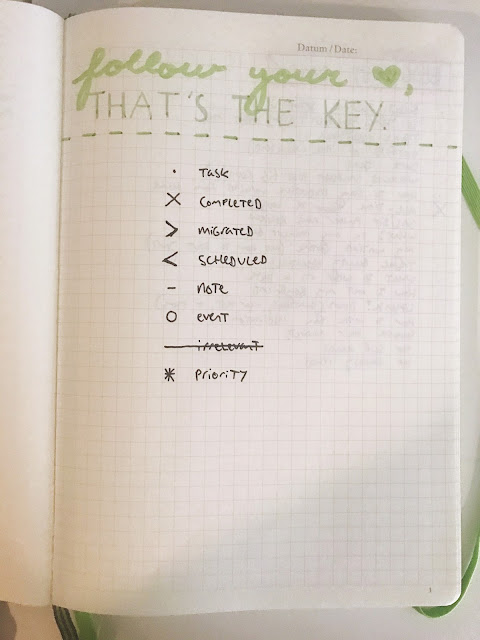 Datum / Date:
follow your ♥,
THAT'S THE KEY.
• TASK
X COMPLETED
> MIGRATED
< SCHEDULED
– NOTE
O EVENT
— irrelevant
* PRIORITY
1